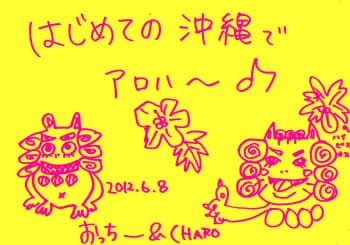 はじめての沖縄で
アロハ～♪
ハイビスカス
2012.6.8
おっちー&CHARO